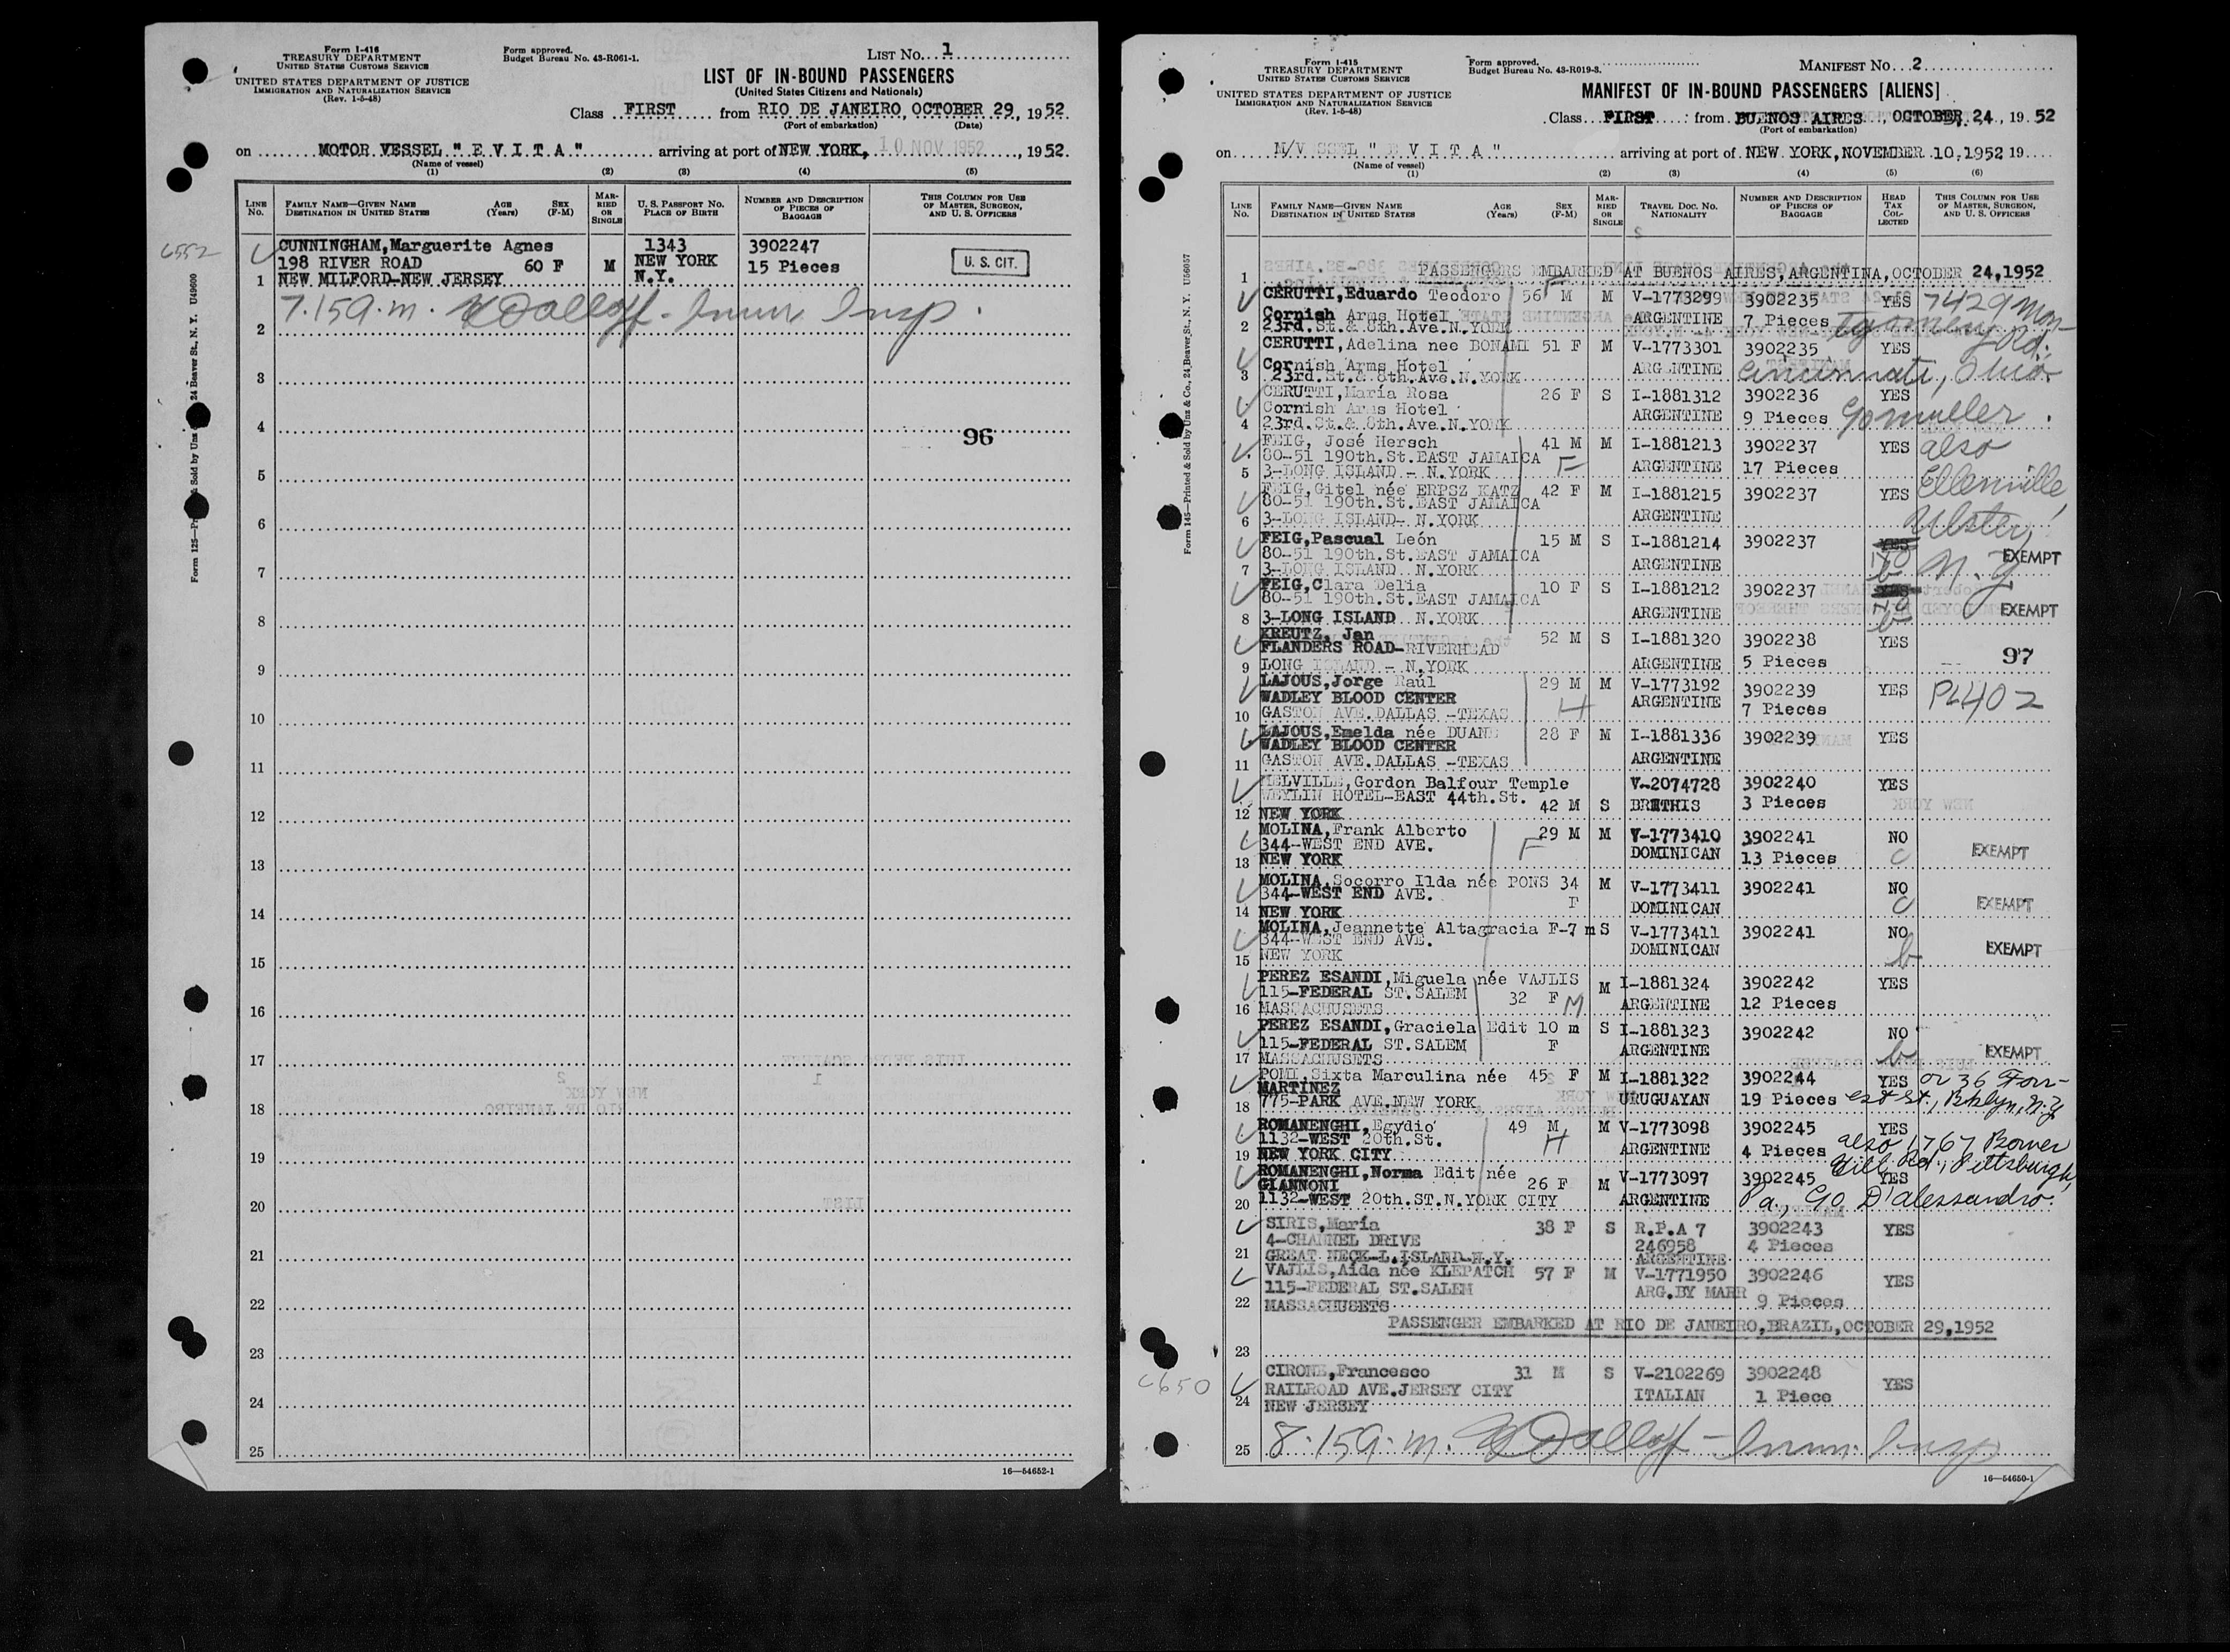 Form I-416
TREASURY DEPARTMENT
UNITED STATES CUSTOMS SERVICE
UNITED STATES DEPARTMENT OF JUSTICE
IMMIGRATION AND NATURALIZATION SERVICE
(Rev. 1-5-48)
Form approved.
Budget Bureau No. 43-R061-1.
LIST No. 1
LIST OF IN-BOUND PASSENGERS
(United States Citizens and Nationals)
Class FIRST from RIO DE JANEIRO, OCTOBER 29, 1952
(Port of embarkation) (Date)
on MOTOR VESSEL "E V I T A" arriving at port of NEW YORK, 10 NOV 1952, 1952.
(Name of vessel)
(1) (2) (3) (4) (5)
LINE No. FAMILY NAME—GIVEN NAME DESTINATION IN UNITED STATES AGE (Years) SEX (F-M) MARRIED OR SINGLE U. S. PASSPORT No. PLACE OF BIRTH NUMBER AND DESCRIPTION OF PIECES OF BAGGAGE THIS COLUMN FOR USE OF MASTER, SURGEON, AND U. S. OFFICERS
CUNNINGHAM, Marguerite Agnes 1343 3902247
198 RIVER ROAD 60 F M NEW YORK 15 Pieces U. S. CIT.
1 NEW MILFORD-NEW JERSEY N.Y.
7.15 a.m. Imm. Insp.
2
3
4 96
5
6
7
8
9
10
11
12
13
14
15
16
17
18
19
20
21
22
23
24
25
16—54652-1
Form I-415
TREASURY DEPARTMENT
UNITED STATES CUSTOMS SERVICE
UNITED STATES DEPARTMENT OF JUSTICE
IMMIGRATION AND NATURALIZATION SERVICE
(Rev. 1-5-48)
Form approved.
Budget Bureau No. 43-R019-3.
MANIFEST No. 2
MANIFEST OF IN-BOUND PASSENGERS [ALIENS]
Class FIRST from BUENOS AIRES, OCTOBER 24, 1952
(Port of embarkation)
on M/V SSEL "E V I T A" arriving at port of NEW YORK, NOVEMBER 10, 1952 19
(Name of vessel)
(1) (2) (3) (4) (5) (6)
LINE No. FAMILY NAME—GIVEN NAME DESTINATION IN UNITED STATES AGE (Years) SEX (F-M) MARRIED OR SINGLE TRAVEL DOC. NO. NATIONALITY NUMBER AND DESCRIPTION OF PIECES OF BAGGAGE HEAD TAX COLLECTED THIS COLUMN FOR USE OF MASTER, SURGEON, AND U. S. OFFICERS
1 PASSENGERS EMBARKED AT BUENOS AIRES, ARGENTINA, OCTOBER 24, 1952
CERUTTI, Eduardo Teodoro 56 M M V-1773299 3902235 YES 7429 Mon-
Cornish Arms Hotel ARGENTINE 7 Pieces tgomery Rd.
2 23rd.St.& 8th.Ave.N.YORK
CERUTTI, Adelina nee BONAMI 51 F M V-1773301 3902235 YES
Cornish Arms Hotel ARGENTINE Cincinnati, Ohio
3 23rd.St.& 8th.Ave.N.YORK
CERUTTI, María Rosa 26 F S I-1881312 3902236 YES
Cornish Arms Hotel ARGENTINE 9 Pieces c/o Muller
4 23rd.St.& 8th.Ave.N.YORK
FEIG, José Hersch 41 M M I-1881213 3902237 YES also
80-51 190th.St.EAST JAMAICA F
5 3-LONG ISLAND - N.YORK ARGENTINE 17 Pieces
FEIG, Gitel née ERPSZ KATZ 42 F M I-1881215 3902237 YES Ellenville,
80-51 190th.St.EAST JAMAICA
6 3-LONG ISLAND- N.YORK ARGENTINE Ulster,
FEIG, Pascual León 15 M S I-1881214 3902237 YES NO b EXEMPT
80-51 190th.St.EAST JAMAICA N.Y.
7 3-LONG ISLAND N.YORK ARGENTINE
FEIG, Clara Delia 10 F S I-1881212 3902237 YES NO b EXEMPT
80-51 190th.St.EAST JAMAICA
8 3-LONG ISLAND N.YORK ARGENTINE
KREUTZ, Jan 52 M S I-1881320 3902238 YES
FLANDERS ROAD-RIVERHEAD 97
9 LONG ISLAND - N.YORK ARGENTINE 5 Pieces
LAJOUS, Jorge Raúl 29 M M V-1773192 3902239 YES PL402
WADLEY BLOOD CENTER H ARGENTINE 7 Pieces
10 GASTON AVE.DALLAS -TEXAS
LAJOUS, Emelda née DUANE 28 F M I-1881336 3902239 YES
WADLEY BLOOD CENTER
11 GASTON AVE.DALLAS -TEXAS ARGENTINE
MELVILLE, Gordon Balfour Temple V-2074728 3902240 YES
WEYLIN HOTEL-EAST 44th.St. 42 M S 3 Pieces
12 NEW YORK
MOLINA, Frank Alberto 29 M M V-1773410 3902241 NO
344-WEST END AVE. F DOMINICAN 13 Pieces c EXEMPT
13 NEW YORK
MOLINA, Socorro Ilda née PONS 34 M V-1773411 3902241 NO
344-WEST END AVE. F c EXEMPT
14 NEW YORK DOMINICAN
MOLINA, Jeannette Altagracia F-7 m S V-1773411 3902241 NO
344-WEST END AVE. DOMINICAN b EXEMPT
15 NEW YORK
PEREZ ESANDI, Miguela née VAJLIS M I-1881324 3902242 YES
115-FEDERAL ST.SALEM 32 F M
16 MASSACHUSETS ARGENTINE 12 Pieces
PEREZ ESANDI, Graciela Edit 10 m S I-1881323 3902242 NO
115-FEDERAL ST.SALEM F ARGENTINE b EXEMPT
17 MASSACHUSETS
POMI, Sixta Marculina née 45 F M I-1881322 3902244 YES or 36 Forr-
MARTINEZ
18 775-PARK AVE.NEW YORK URUGUAYAN 19 Pieces est St., Bklyn, N.Y.
ROMANENGHI, Egydio 49 M M V-1773098 3902245 YES
1132-WEST 20th.St. H also 1767 Bower
19 NEW YORK CITY ARGENTINE 4 Pieces Hill Rd., Pittsburgh,
ROMANENGHI, Norma Edit née V-1773097 3902245 YES
GIANNONI 26 F M
20 1132-WEST 20th.ST.N.YORK CITY ARGENTINE Pa., c/o D'alessandro.
SIRIS, María 38 F S R.P.A 7 3902243 YES
4-CHANNEL DRIVE 246958 4 Pieces
21 GREAT NECK-L.ISLAND-N.Y. ARGENTINE
VAJLIS, Aída née KLEPATCH 57 F M V-1771950 3902246 YES
115-FEDERAL ST.SALEM ARG.BY MARR
22 MASSACHUSETS 9 Pieces
PASSENGER EMBARKED AT RIO DE JANEIRO, BRAZIL, OCTOBER 29, 1952
23
CIRONE, Francesco 31 M S V-2102269 3902248 YES
RAILROAD AVE.JERSEY CITY ITALIAN 1 Piece
24 NEW JERSEY
25 8.15 a.m. Imm. Insp
16—54650-1